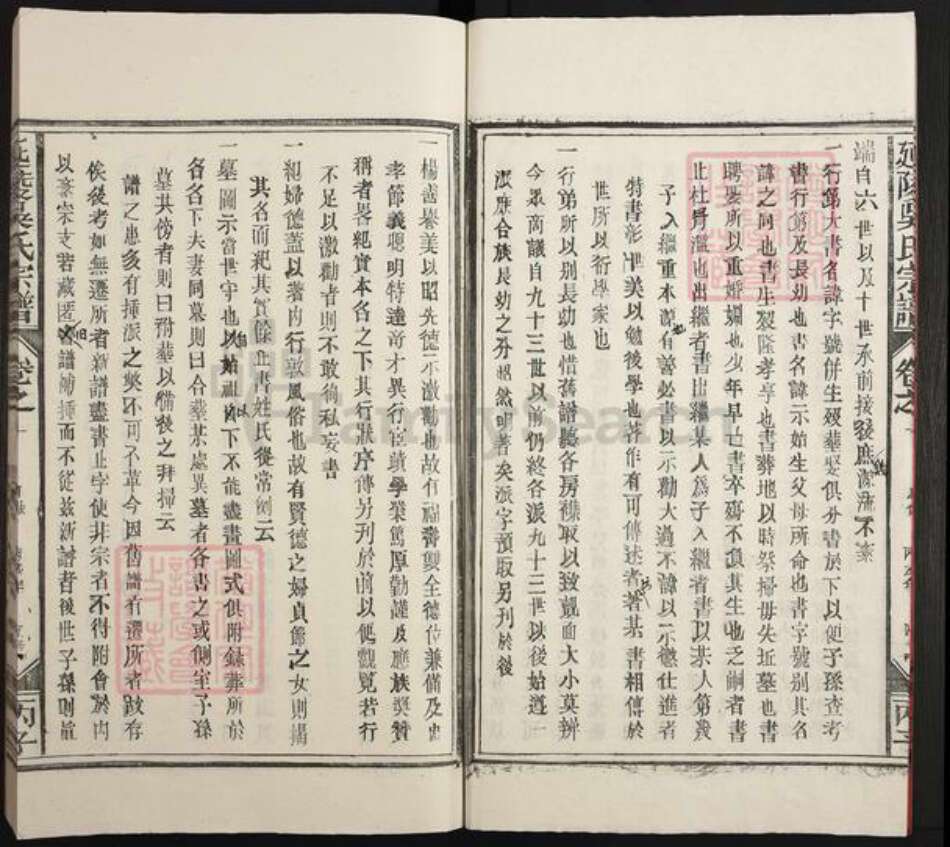 端自六世以及十世承前接後庶源流不紊
一行第大書名諱字號併生歿葬娶俱分書於下以便子孫查考
書行第及長幼也書名諱示始生父母所命也書字號别其名
諱之同也書生裂隆孝享也書葬地以時祭掃毋失坵墓也書
聘娶所以重婚姻也少年早亡書卒殤不須其生也乏嗣者書
止杜冐濫也出繼者書出繼某人爲子入繼者書以某人第幾
子入繼重本源有善必書以示勸大過不諱以示懲仕進者
特書彰世美以勉後學也著作有可傳述者著某書相傳於
世所以衍學家也
一行第所以别長幼也惜舊譜繇各房襍取以致覿面大小莫辨
今眾商議自九十三世以前仍終各派九十三世以後始遵一
派庶合族長幼之分昭然明著矣派字預取另刊於後
一楊善譽美以昭先德示激勸也故有福壽雙全德位兼備及忠
孝節義聰明特達奇才異行宦蹟學業篤厚勤謹及應族奬贊
稱者畧紀實本名之下其行狀序傳另刊於前以便觀覽若行
不足以激勸者則不敢徇私妄書
一紀婦德蓋以著內行敦風俗也故有賢德之婦貞節之女則揭
其名而紀其實餘止書姓氏從常例云
一墓圖示當世守也以始祖以下不能盡畫圖式俱附錄葬所於
各名下夫妻同墓則曰合葬某處異墓者各書之或側室子孫
墓其傍者則曰附葬以備後之拜掃云
一譜之患多有挿派之獘不可不革今因舊譜有遷所者跋存
俟後考如無遷所者新譜盡書止字使非宗者不得附會於內
以紊宗支若藏匿舊譜師挿而不從茲新譜者後世子孫則旨
延陵吳氏宗譜
卷之一
丙子